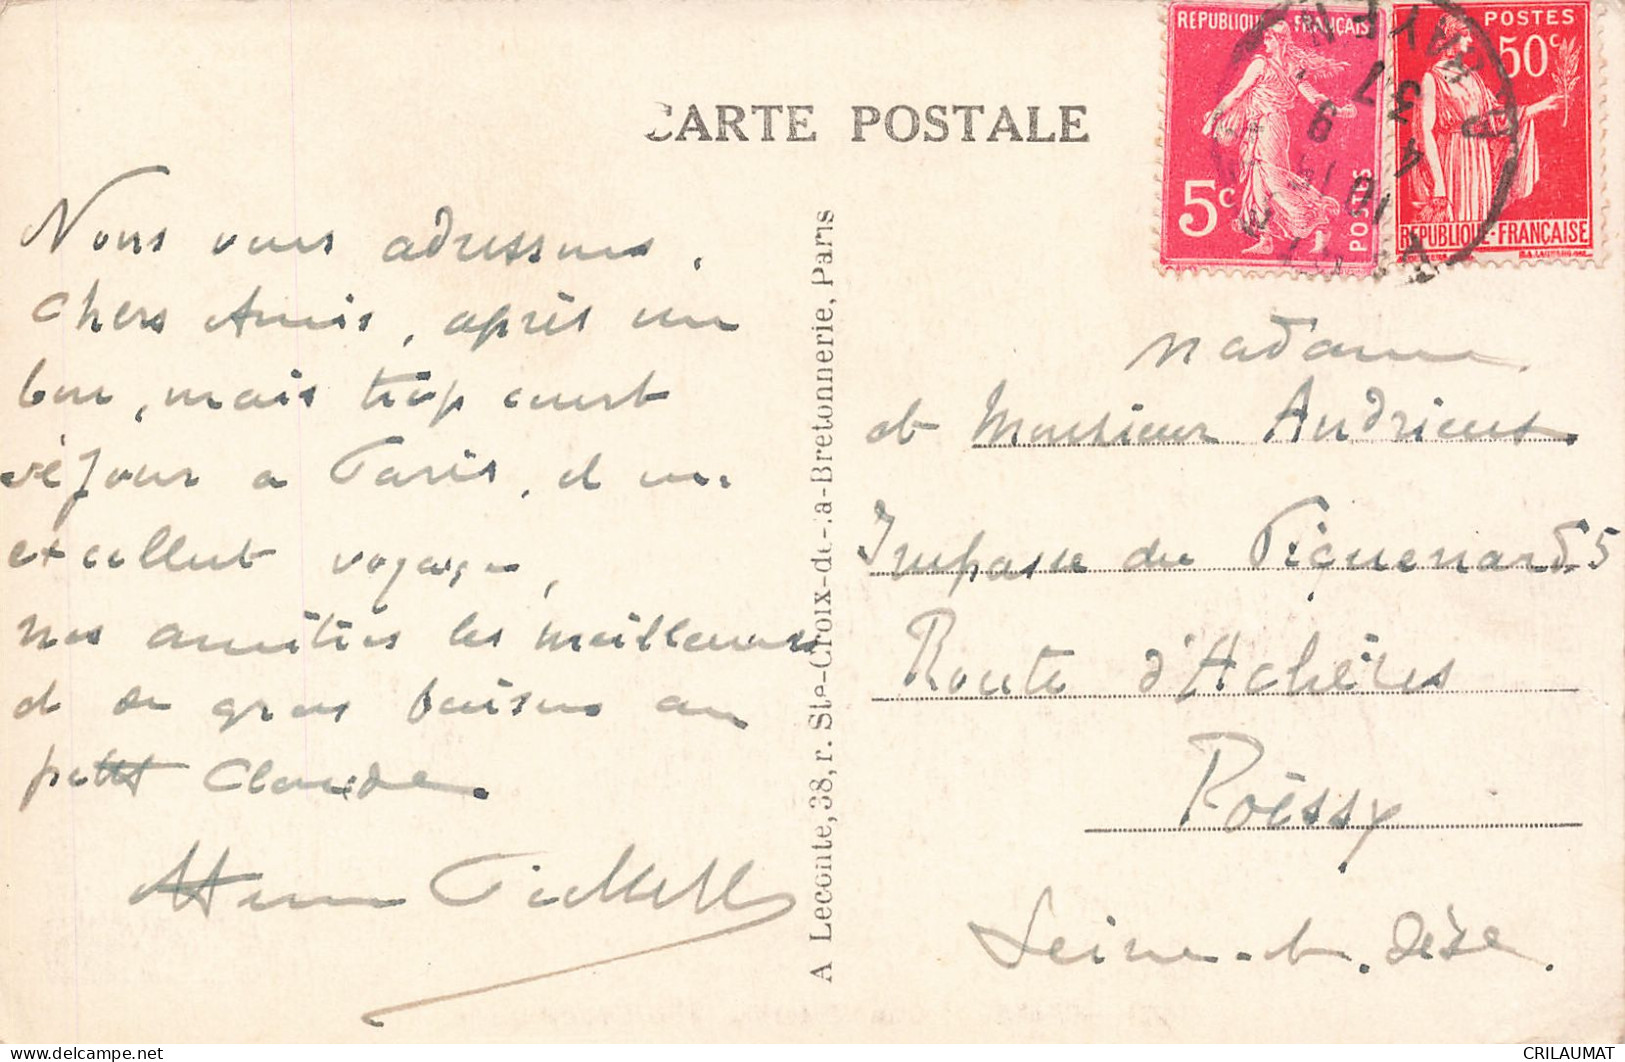 CARTE POSTALE
Nous vous adressons,
chers Amis, après un
bon, mais trop court
séjour a Paris, et un
excellent voyage,
nos amitiés les meilleures
et de gros baisers au
petit Claude.
A Leconte, 38, r. Ste-Croix-de-la-Bretonnerie, Paris
REPUBLIQUE FRANÇAISE
5c
POSTES
POSTES
50c
REPUBLIQUE-FRANÇAISE
10
4
37
Madame
et Monsieur Andrieux.
Impasse du Piquenard 5
Route d'Achères
Poissy
Seine-et-Oise.
delcampe.net
CRILAUMAT